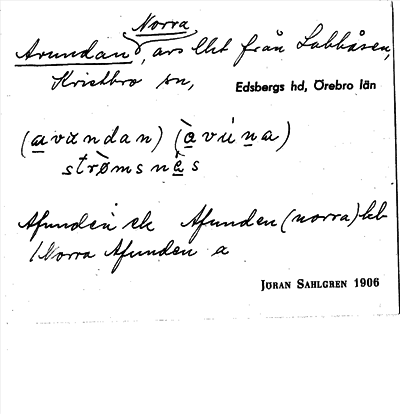 Norra
Avundan, avs lht från Labbåsen,
Kvistbro sn, Edsbergs hd, Örebro län
(avundan) (àvúna)
strømsnès
Afunden ek Afunden (norra) hb
/Norra Afunden a
JÖRAN SAHLGREN 1906